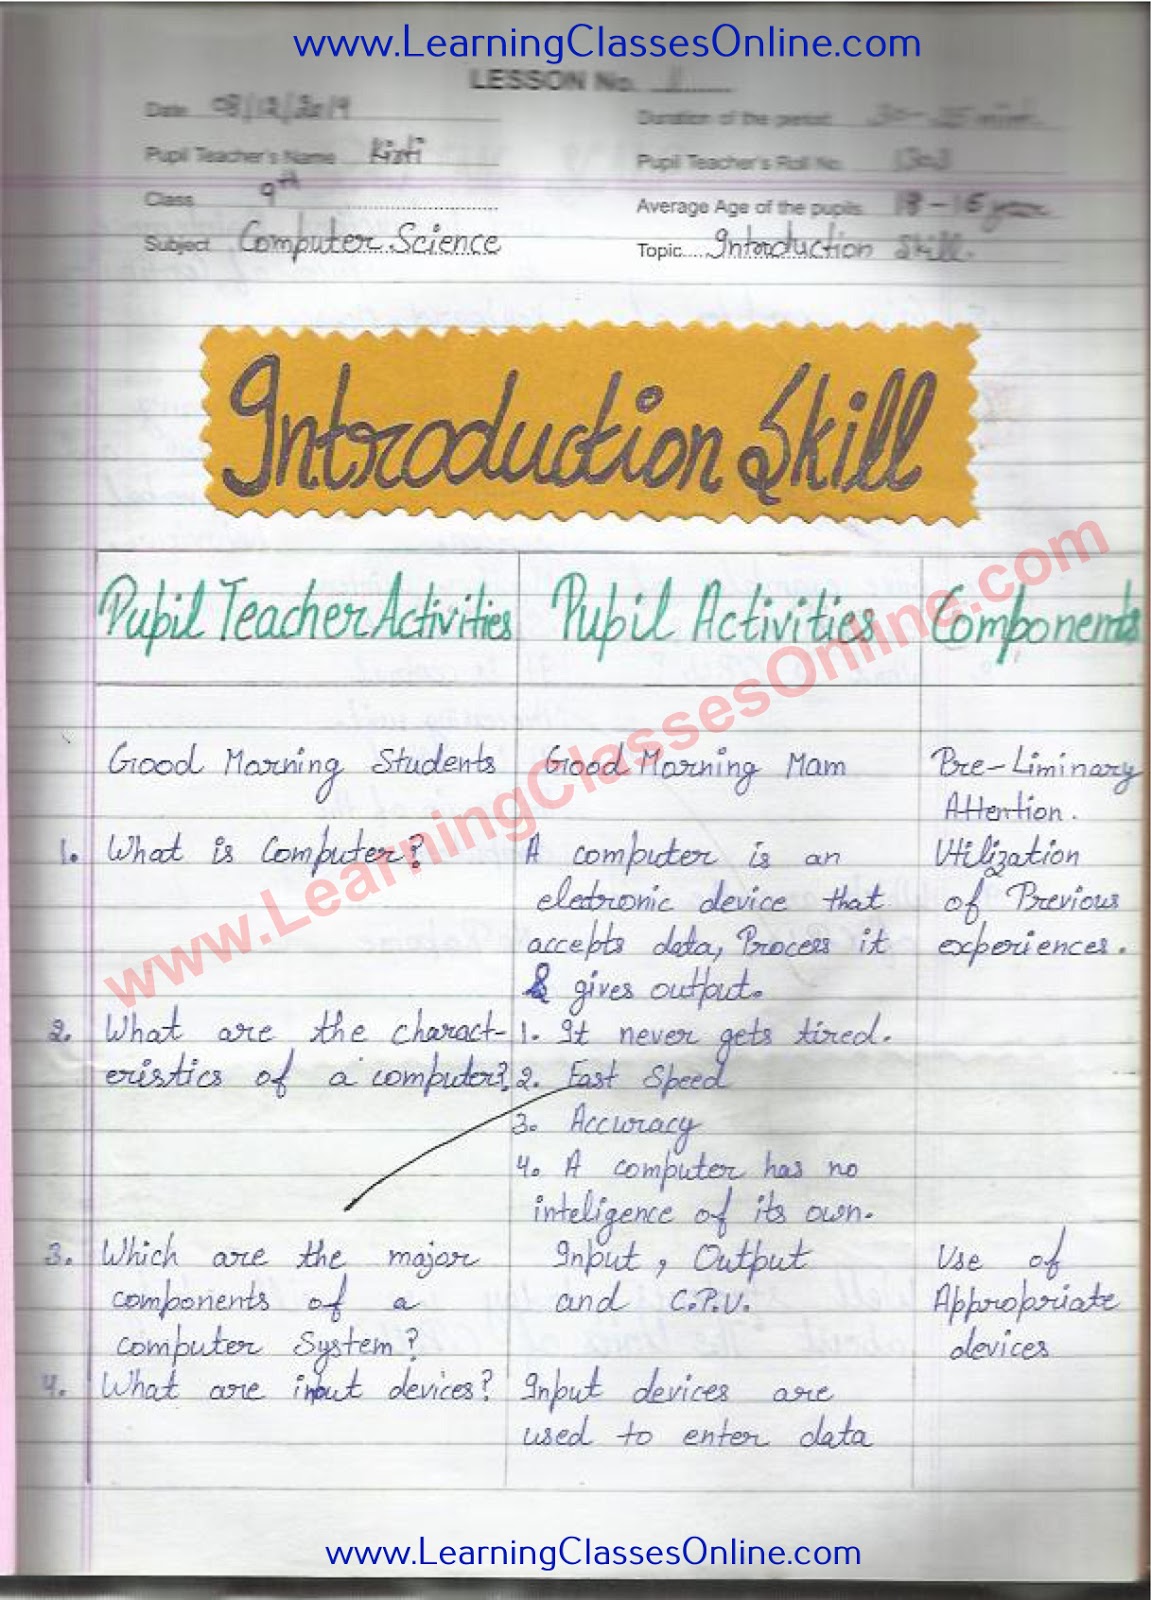 www.LearningClassesOnline.com
LESSON No. 1
Date 03/12/2019 Duration of the period 30-35 mint.
Pupil Teacher's Name Kirti Pupil Teacher's Roll No. 1303
Class 9th Average Age of the pupils 13-15 year
Subject Computer Science Topic Introduction Skill.
Introduction Skill
Pupil Teacher Activities Pupil Activities Components
Good Morning Students Good Morning Mam Pre-Liminary
Attention.
1. What is Computer? A computer is an Utilization
eletronic device that of Previous
accepts data, Process it experiences.
& gives output.
2. What are the charact- 1. It never gets tired.
eristics of a computer? 2. Fast Speed
3. Accuracy
4. A computer has no
inteligence of its own.
3. Which are the major Input, Output Use of
components of a and C.P.U. Appropriate
computer System? devices
4. What are input devices? Input devices are
used to enter data
www.LearningClassesOnline.com
www.LearningClassesOnline.com